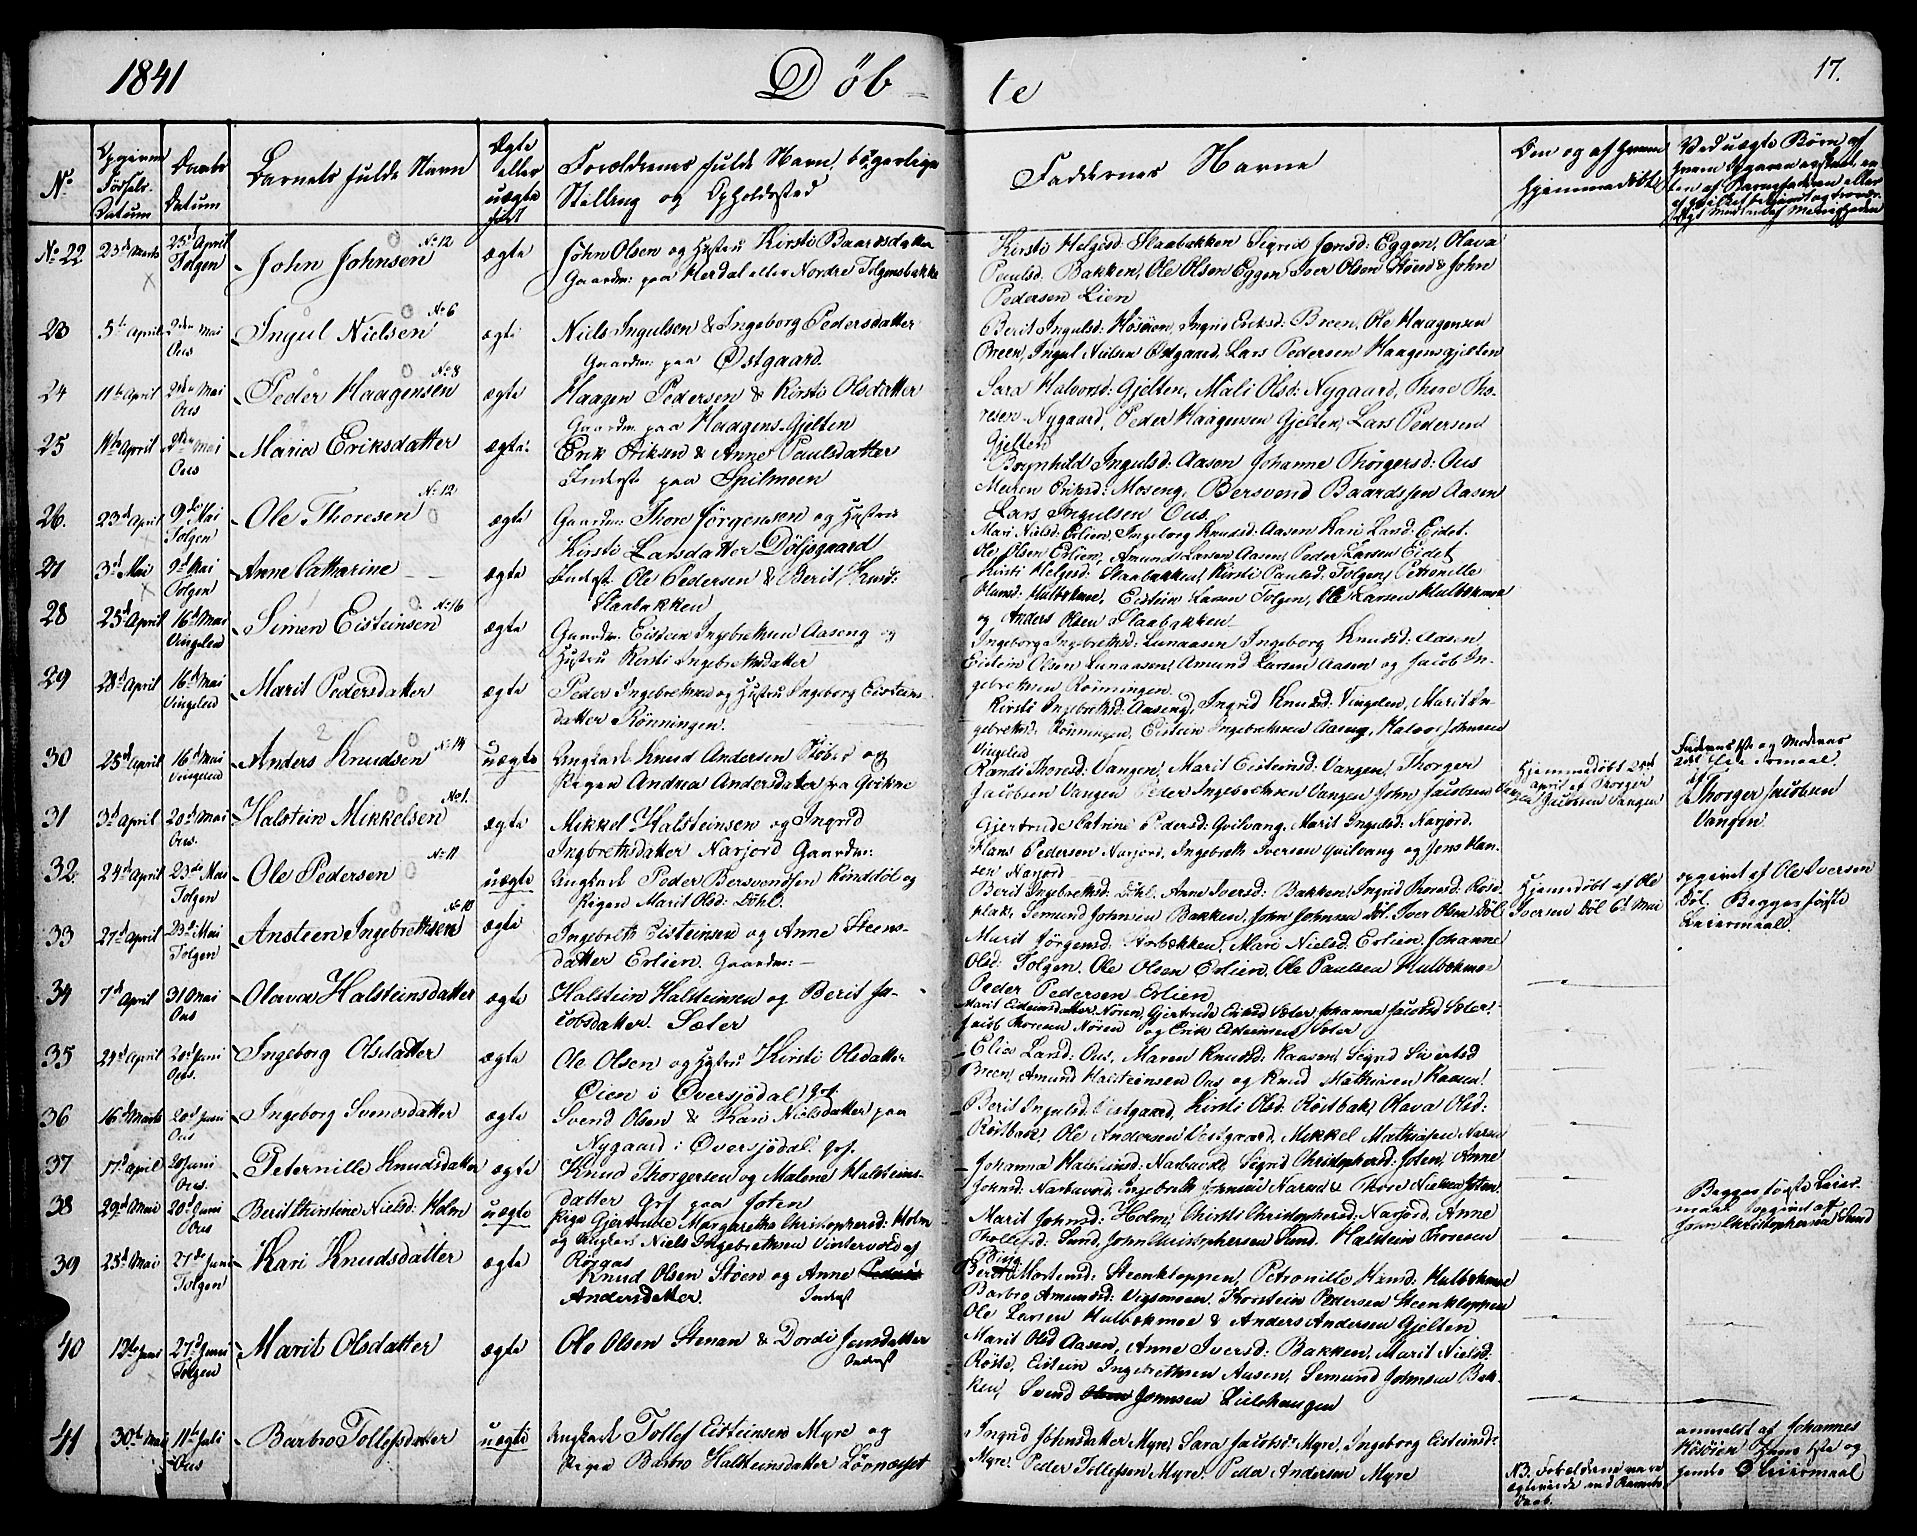 1841 Døb te 17.
No Opgiven Fødsels Datum Daabs Datum Barnets fulde Navn Ægte eller uægte født Forældrenes fulde Navn, borgerlige Stilling og Opholdssted Faddernes Navne
No 22 23d Marts 25d April Tolgen John Johnsen No 12 ægte John Olsen og Hustru Kirsti Baardsdatter
Gaardm: paa Herdal eller Nordre Tolgensbakke
Kirsti Helgesd: Slaabakken Sigrid Jonsd: Eggen, Olava
Paulsd. Bakken, Ole Olsen Eggen Iver Olsen & John
Pedersen Lien
23 5te April 2den Mai Ous Ingul Nielsen No 6 ægte Niels Ingulsen & Ingeborg Pedersdatter
Gaardm: paa Østgaard.
Berit Ingulsd: Hosøien, Ingrid Eriksd: Breen, Ole Haagensen
Breen, Ingul Nielsen Østgaard, Lars Pedersen Haagensgjelten
24 11te April 2den Mai Ous Peder Haagensen No 8 ægte Haagen Pedersen & Kirsti Olsdatter
Gaardm: paa Haagens-Gjelten
Sara Halvorsd: Gjelten, Mali Olsd: Nygaard, Thore Tho-
resen Nygaard, Peder Haagensen Gjelten, Lars Pedersen
Gjelten
25 11te April 2den Mai Ous Maria Eriksdatter ægte: Erik Eriksen & Anne Paulsdatter
Inderst paa Spilmoen
Brynhild Ingulsd: Aasen Johanne Thorgersd: Ous
Maren Eriksd: Moseng, Bersvend Baardssen Aasen
Lars Ingulsen Ous.
26. 23d April 9de Mai Tolgen Ole Thoresen No 12 ægte Gaardm: Thore Jørgensen og Hustru
Kirsti Larsdatter Døljsgaard
Mari Nielsd: Erlien, Ingeborg Knudsd: Aasen Kari Larsd: Eidet.
Ole Olsen Erlien, Amund Larsen Aasen, Peder Larsen Eidet
27 3d Mai 9d Mai Tolgen Anne Catharine ægte Inderst Ole Pedersen & Berit Knud:
Slaabakken
Kirsti Helgesd: Slaabakken, Kirsti Paulsd: Tolgen, Petronille
Hulbækmoe, Eistein Larsen Tolgen, Ole Larsen Hulbekmoe
og Anders Olsen Slaabakken
28 25d April 16d Mai Vingelen Simen Eisteinsen No 16 ægte Gaardm: Eistein Ingebrethsen Aaseng og
Hustru Kersti Ingebrethsdatter
Ingeborg Ingebrethsd: Lunaasen Ingeborg Knudsd: Aasen
Eistein Olsen Lunaasen, Amund Larsen Aasen og Jacob In-
gebrethsen Rønningen.
29 28d April 16d Mai Vingelen Marit Pedersdatter ægte Peder Ingebrethsen og Hustru Ingeborg Eisteins-
datter Rønningen.
Kirsti Ingebrethsd: Aaseng, Ingrid Knudsd: Vingelen, Marit In-
gebrethsd: Rønningen, Eistein Ingebrethsen Aaseng, Halvor Johnsen
Vingelen
30 25d April 16d Mai Vingelen Anders Knudsen No 14 uægte Ungkarl Knud Andersen og
Pigen Andrea Andersdatter fra Qvikne
Randi Thoresd: Vangen, Marit Eisteinsd: Vangen, Thorger
Jacobsen Vangen Peder Ingebrethsen Vangen John Jacobsen
Hjemmedøbt 25de
April af Thorger
Jacobsen Vangen
Faderens 1ste og Moderens
2det Leiermaal.
af
Thorger Jacobsen
Vangen
31 3d April 20d Mai Ous. Halstein Mikkelsen No 1. ægte Mikkel Halsteinsen og Ingrid
Ingebrethsdatter Narjord Gaardm:
Gjertrude Catrine Pedersd: Qvilvang, Marit Ingulsd: Narjord.
Hans Pedersen Narjord, Ingebreth Iversen Qvilvang og Jens Han-
sen Narjord
32. 24d April 23de Mai Tolgen Ole Pedersen No 11 uægte Ungkarl Peder Bersvendsen og
Pigen Marit Olsd: Döhl.
Berit Ingebrethsd: Döhl, Anne Iversd: Bakken, Ingrid Thoresd: Røse-
plads, Semund Johnsen Bakken, John Johnsen Döl Iver Olsen Döl
Hjemmedøbt af Ole
Iversen Döl 6d Mai
opgivet af Ole Iversen
Döl. Begges første
Leiermaal.
33 27d April 23d Mai Tolgen Ansteen Ingebrethsen No 10 ægte Ingebreth Eisteinsen og Anne Steens-
datter Erlien. Gaardm:
Marit Jörgensd: Storbækken, Mari Nielsd. Erlien, Johanne
Olsd: Tolgen, Ole Olsen Erlien, Ole Paulsen Hulbækmoe
Peder Pedersen Erlien
34 7d April 31 Mai Ous Olava Halsteinsdatter ægte Halstein Halsteinsen og Berit Ja-
cobsdatter. Sæter
Marit Eisteinsdatter Nören, Gjertrude Eriksd Sæter, Johanna Jacobsd Sæter,
Jacob Thoresen Nören og Erik Eisteinsen Sæter
35 29d April 20d Juni Ous. Ingeborg Olsdatter ægte Ole Olsen og Hustru Kirsti Olsdatter
Øien i Øversjødal
Elie Larsd: Ous, Maren Knudsd: Kaasen, Sigrid Sivertsd
Breen, Amund Halsteinsen Ous og Knud Mathisen Kaasen.
36 16d Marts 20d Juni Ous Ingeborg Svendsdatter ægte Svend Olsen & Kari Nielsdatter paa
Nygaard i Øversjødal.
Berit Ingulsd: Vestgaard, Kirsti Olsd: Røstbak, Olava Olsd:
Røstbak, Ole Andersen Vestgaard, Mikkel Mathisen
37 17d April 20 Juni Ous. Peternille Knudsdatter ægte Knud Thorgersen og Malene Halsteins-
datter paa Joten
Johanna Halsteinsd: Narbuvold, Sigrid Christophersd: Joten, Anne
Johnsd: Narbuvold, Ingebreth Johnsen & Thore Nielsen Joten
38 29d Mai 20d Juni Ous Berit Kirstine Nielsd: Holm uægte Pige Gjertrude Margarethe Christophersd: Holm
og Ungkarl Niels Ingebrethsen Vintervold af
Røraas
Marit Johnsd: Holm, Christi Christophersd: Narjord, Anne
Tollefsd: Sund, John Christophersen Sund. Halstein Thoresen
Begges første Leier-
maal opgivet af
John Christophersen Sund
39 25d Mai 27de Juni Tolgen Kari Knudsdatter ægte Knud Olsen Støen og Anne
Andersdatter. Inderst
Berit Mortensd: Steenkloppen, Petronille Hulbækmoe
Barbro Amundsd: Vigsmoen. Thorstein Pedersen Steenkloppen
Ole Larsen Hulbækmoe & Anders Andersen Gjelten
40 13de Juni 27d Juni Tolgen Marit Olsdatter ægte Ole Olsen Stenan & Dordi Jonsdatter
Inderst
Marit Olsd Aasen, Anne Iversd: Bakken, Marit Nielsd:
Røste, Eistein Ingebrethsen Aasen, Semund Johnsen Bak-
ken, Svend Johnsen Lislehaugen
41 30te Mai 11te Juli Ous Barbro Tollefsdatter uægte Ungkarl Tollef Eisteinsen Myre og
Pigen Barbro Halsteinsdatter Løvnæset
Ingrid Johnsdatter Myre, Sara Jacobsd: Myre, Ingeborg Eisteinsd:
Myre. Peder Tollefsen Myre, Peder Andersen Myre
NB. Forældrene vare
ægteviede ved Barnets
Daab.
anmeldt af Johannes
Hosøien Hans 1ste og
hendes Leiermaal